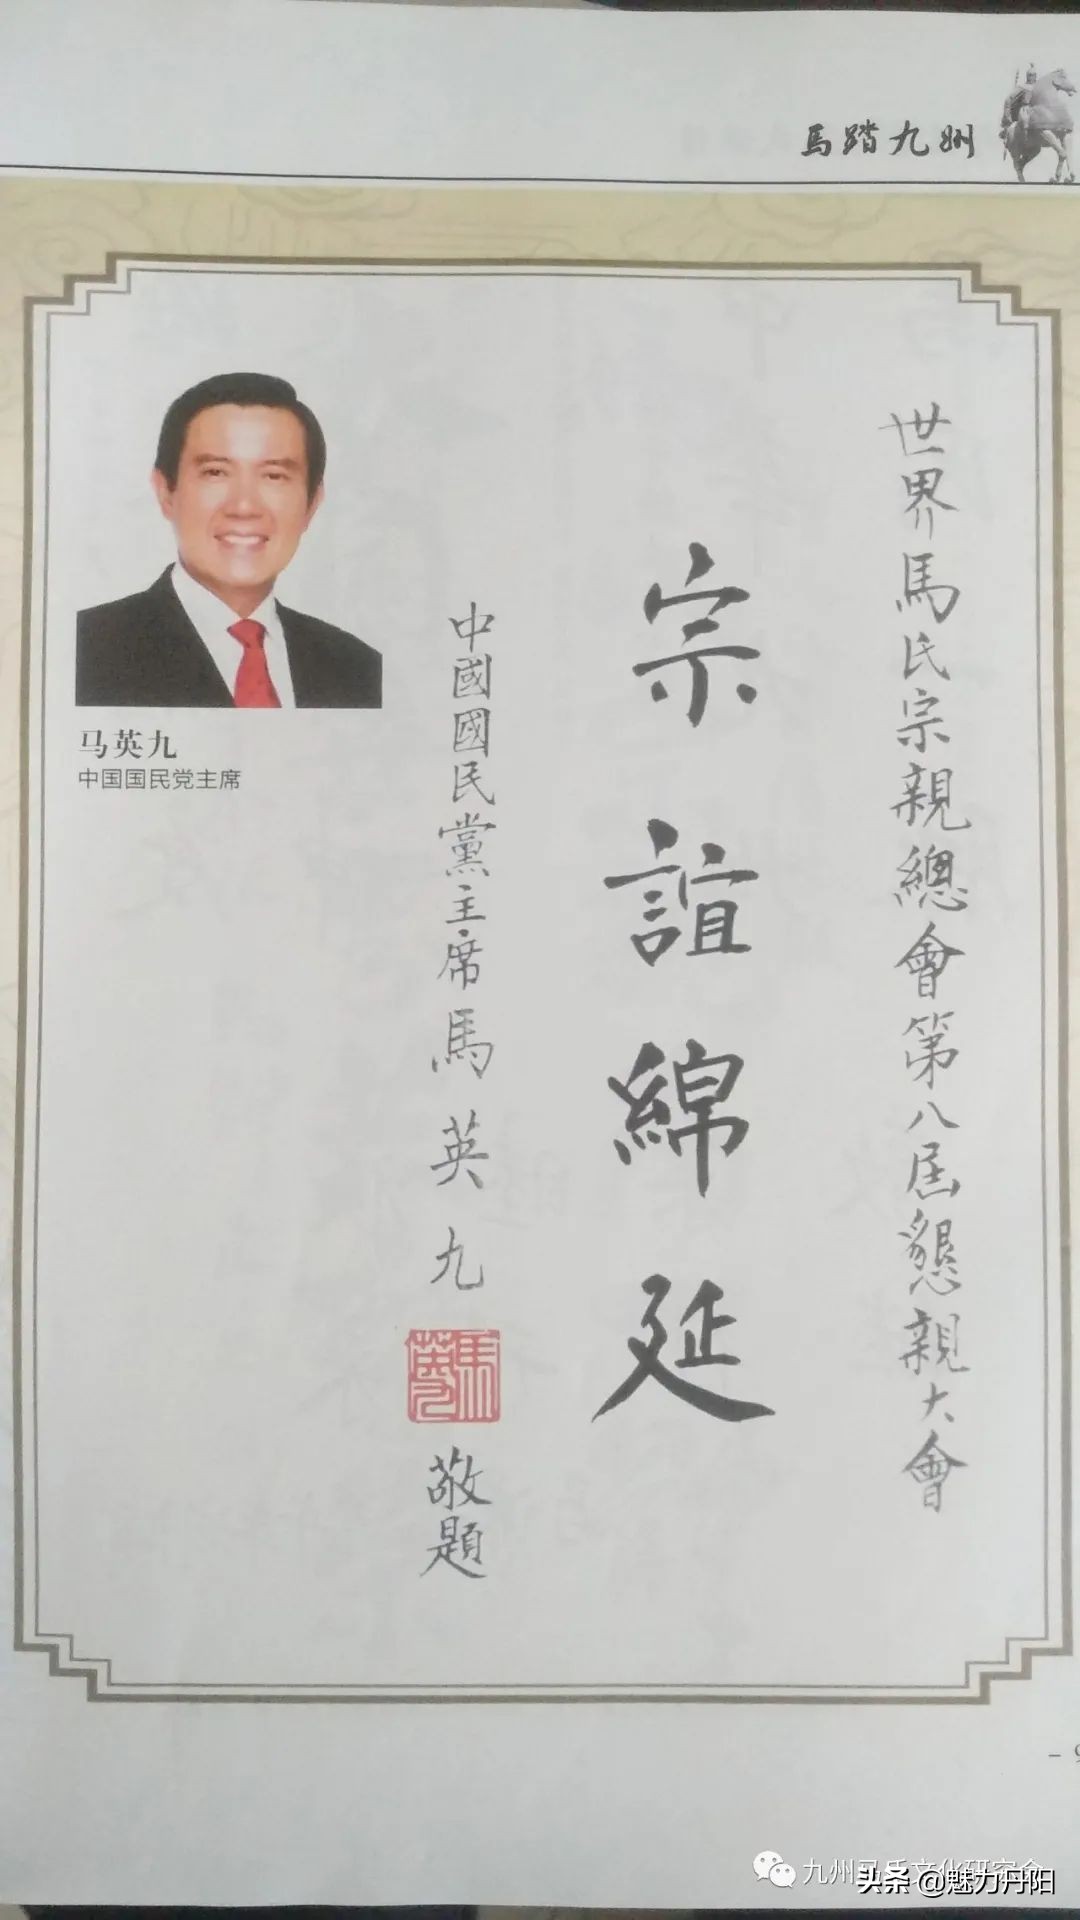 馬踏九州
世界馬氏宗親總會第八屆懇親大會
宗誼綿延
中國國民黨主席馬英九
馬英九
敬題
马英九
中国国民党主席
头条 @魅力丹阳